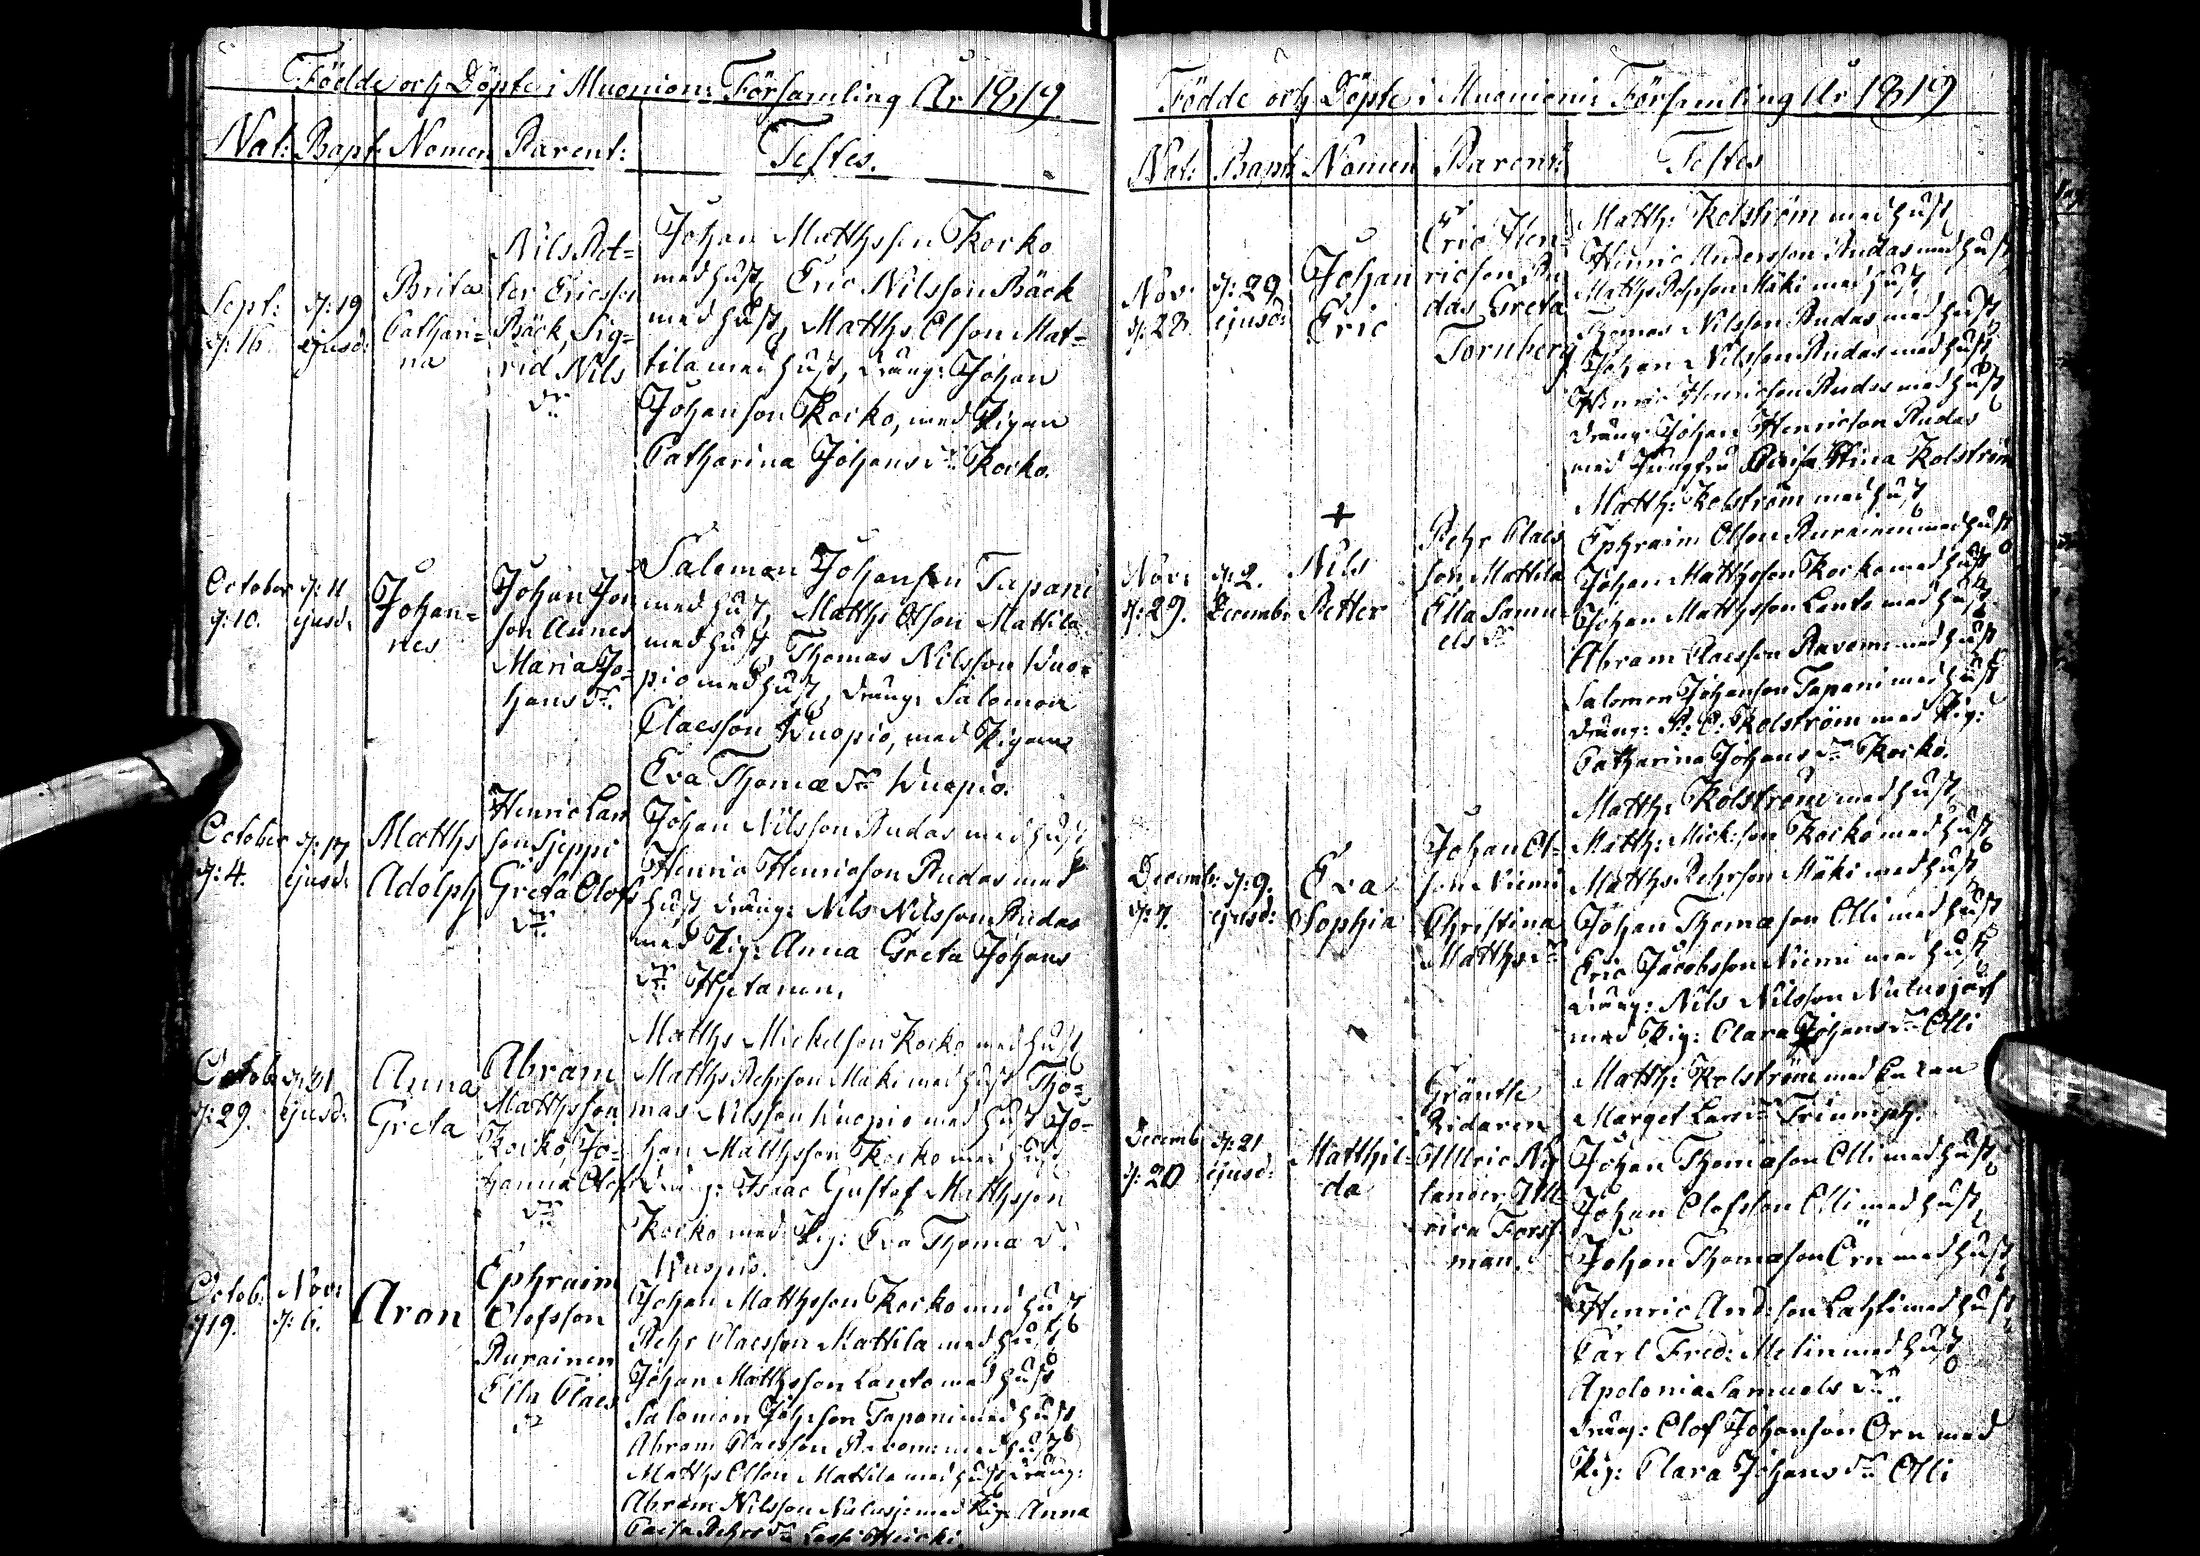 Födde och Döpte i Muonion: Församling År 1819
Nat: Bapt: Nomen Parent: Testes.
Sept: d: 16.
d: 19 ejusd:
Brita
Cathari=
na
Nils Pet=
ter Ericsson
Bäck, Sig=
rid Nils
dr
Johan Matthsson Korko
med hust, Eric Nilsson Bäck
med hust, Matths Olson Mat=
tila med hust, dräng: Johan
Johanson Korko, med Pigan
Catharina Johans dr Korko.
October d: 10.
d: 11 ejusd:
Johan=
nes
Johan Jo
son
Maria Jo=
hans dr
Salomon Johanson Tapani
med hust, Matths Olson Mattila
med hust, Thomas Nilsson Kuo=
pio med hust, dräng: Salomon
Claesson Kuopio, med Pigan
Eva Thomæ dr Kuopio.
October d: 4.
d: 17 ejusd:
Matths
Adolph
Henric Lars
son
Greta Olofs
dr
Johan Nilsson Rudas med hust
Henric Henricson Rudas med
hust dräng: Nils Nilsson Rudas
med Pig: Anna Greta Johans
dr Hietanen.
Octob: d: 29.
d: 31 ejusd:
Anna
Greta
Abram
Matthsson
Korko, Jo=
hanna Olofs
dr
Matths Mickelson Korko med hust
Matths Pehrson Mäki med hust Tho=
mas Nilsson Kuopio med hust Jo=
han Matthsson Korko med hust
dräng: Isaac Gustaf Matthsson
Korko med Pig: Eva Thomæ d:
Kuopio.
Octob: d 19.
Nov: d: 6.
Aron
Ephraim
Olofsson
Rurainen
Ella Claes
dr
Johan Matthsson Korko med hust
Pehr Claesson Mattila med hust
Johan Matthsson Lanto med hust
Salomon Johson Tapani med hust
Abram Claesson Ravomi med hust
Matths Olson Mattila med hust dräng:
Abram Nilsson med Pig: Anna
Caisa Pehrs dr
Födde och Döpte i Muonion: Församling År 1819
Nat: Bapt: Nomen Parent: Testes
Nov: d: 28.
d: 29 ejusd:
Johan
Eric
Eric Hen=
ricson Ru
das Greta
Tornberg
Matth: Kolström med hust
Henric Andersson Rudas med hust
Matths Pehrson Mäki med hust
Thomas Nilsson Rudas med hust
Johan Nilsson Rudas med hust
Henric Henricson Rudas med hust
dräng: Johan Henricson Rudas
med Jungfru Stina Kolström
Nov: d: 29.
d: 2. Decemb:
+
Nils
Petter
Pehr Claes
son Mattila
Ella Samu=
els dr
Matth: Kolström med hust
Ephraim Olson Rurainen med hust
Johan Matthsson Korko med hust
Johan Matthsson Lanto med hust
Abram Claesson Ravomi med hust
Salomon Johanson Tapani med hust
dräng: P: C: Kolström med Pig:
Catharina Johans dr Korko.
Decemb: d: 7.
d: 9. ejusd:
Eva
Sophia
Johan Ol=
son Niemi
Christina
Matths dr
Matth: Kolström med hust
Matth: Mickson Korko med hust
Matths Pehrson Mäki med hust
Johan Thomæson Olli med hust
Eric Jacobsson Niemi med hust
dräng: Nils Nilsson Nulusjärf
med Pig: Clara Johans dr Olli
Decemb: d: 20
d: 21 ejusd:
Matthil=
da
Gräntse
Ridaren
Ollric Ny
lander, Ull
rica Fors
man.
Matth: Kolström med
Marget Lars dr Triumph:
Johan Thomæson Olli med hust
Johan Olofsson Olli med hust
Johan Thomæson Örn med hust
Henric And:son Lahti med hust
Carl Fred: Melin med hust
Apolonia Samuels dr
dräng: Olof Johanson Örn med
Pig: Clara Johans dr Olli